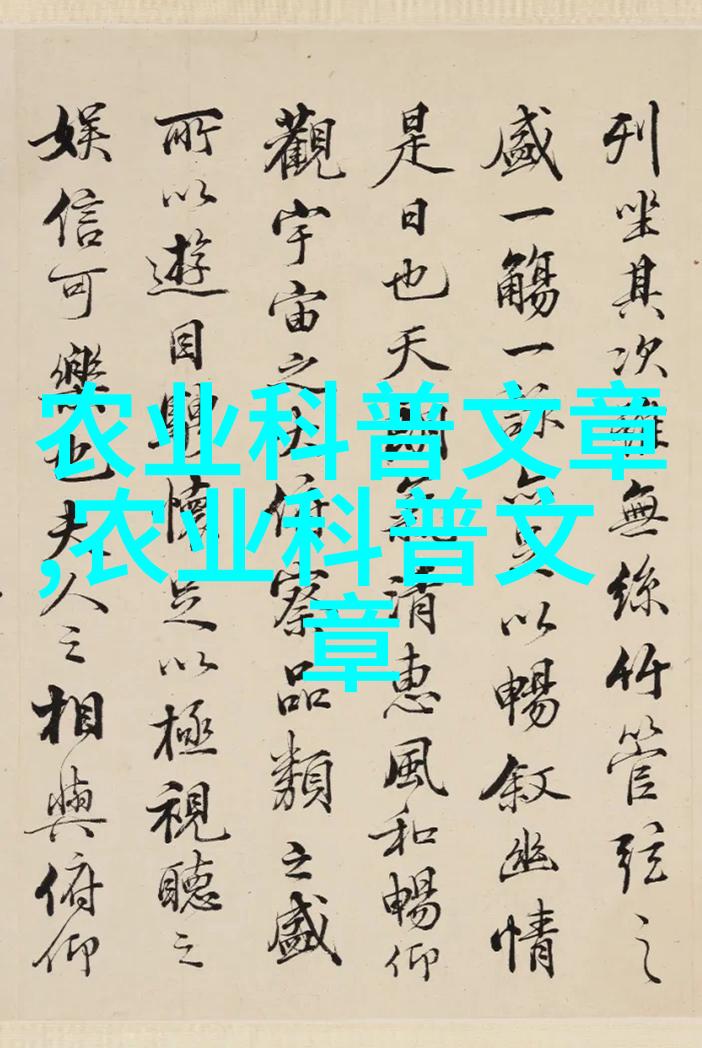 列坐其次雖無絲竹管弦之
盛一觴一詠亦足以暢叙幽情
是日也天朗氣清惠風和暢仰
觀宇宙之大俯察品類之盛
所以遊目騁懷足以極視聽之
娱信可樂也夫人之相與俯仰
农业科普文章
,农业科普文
章